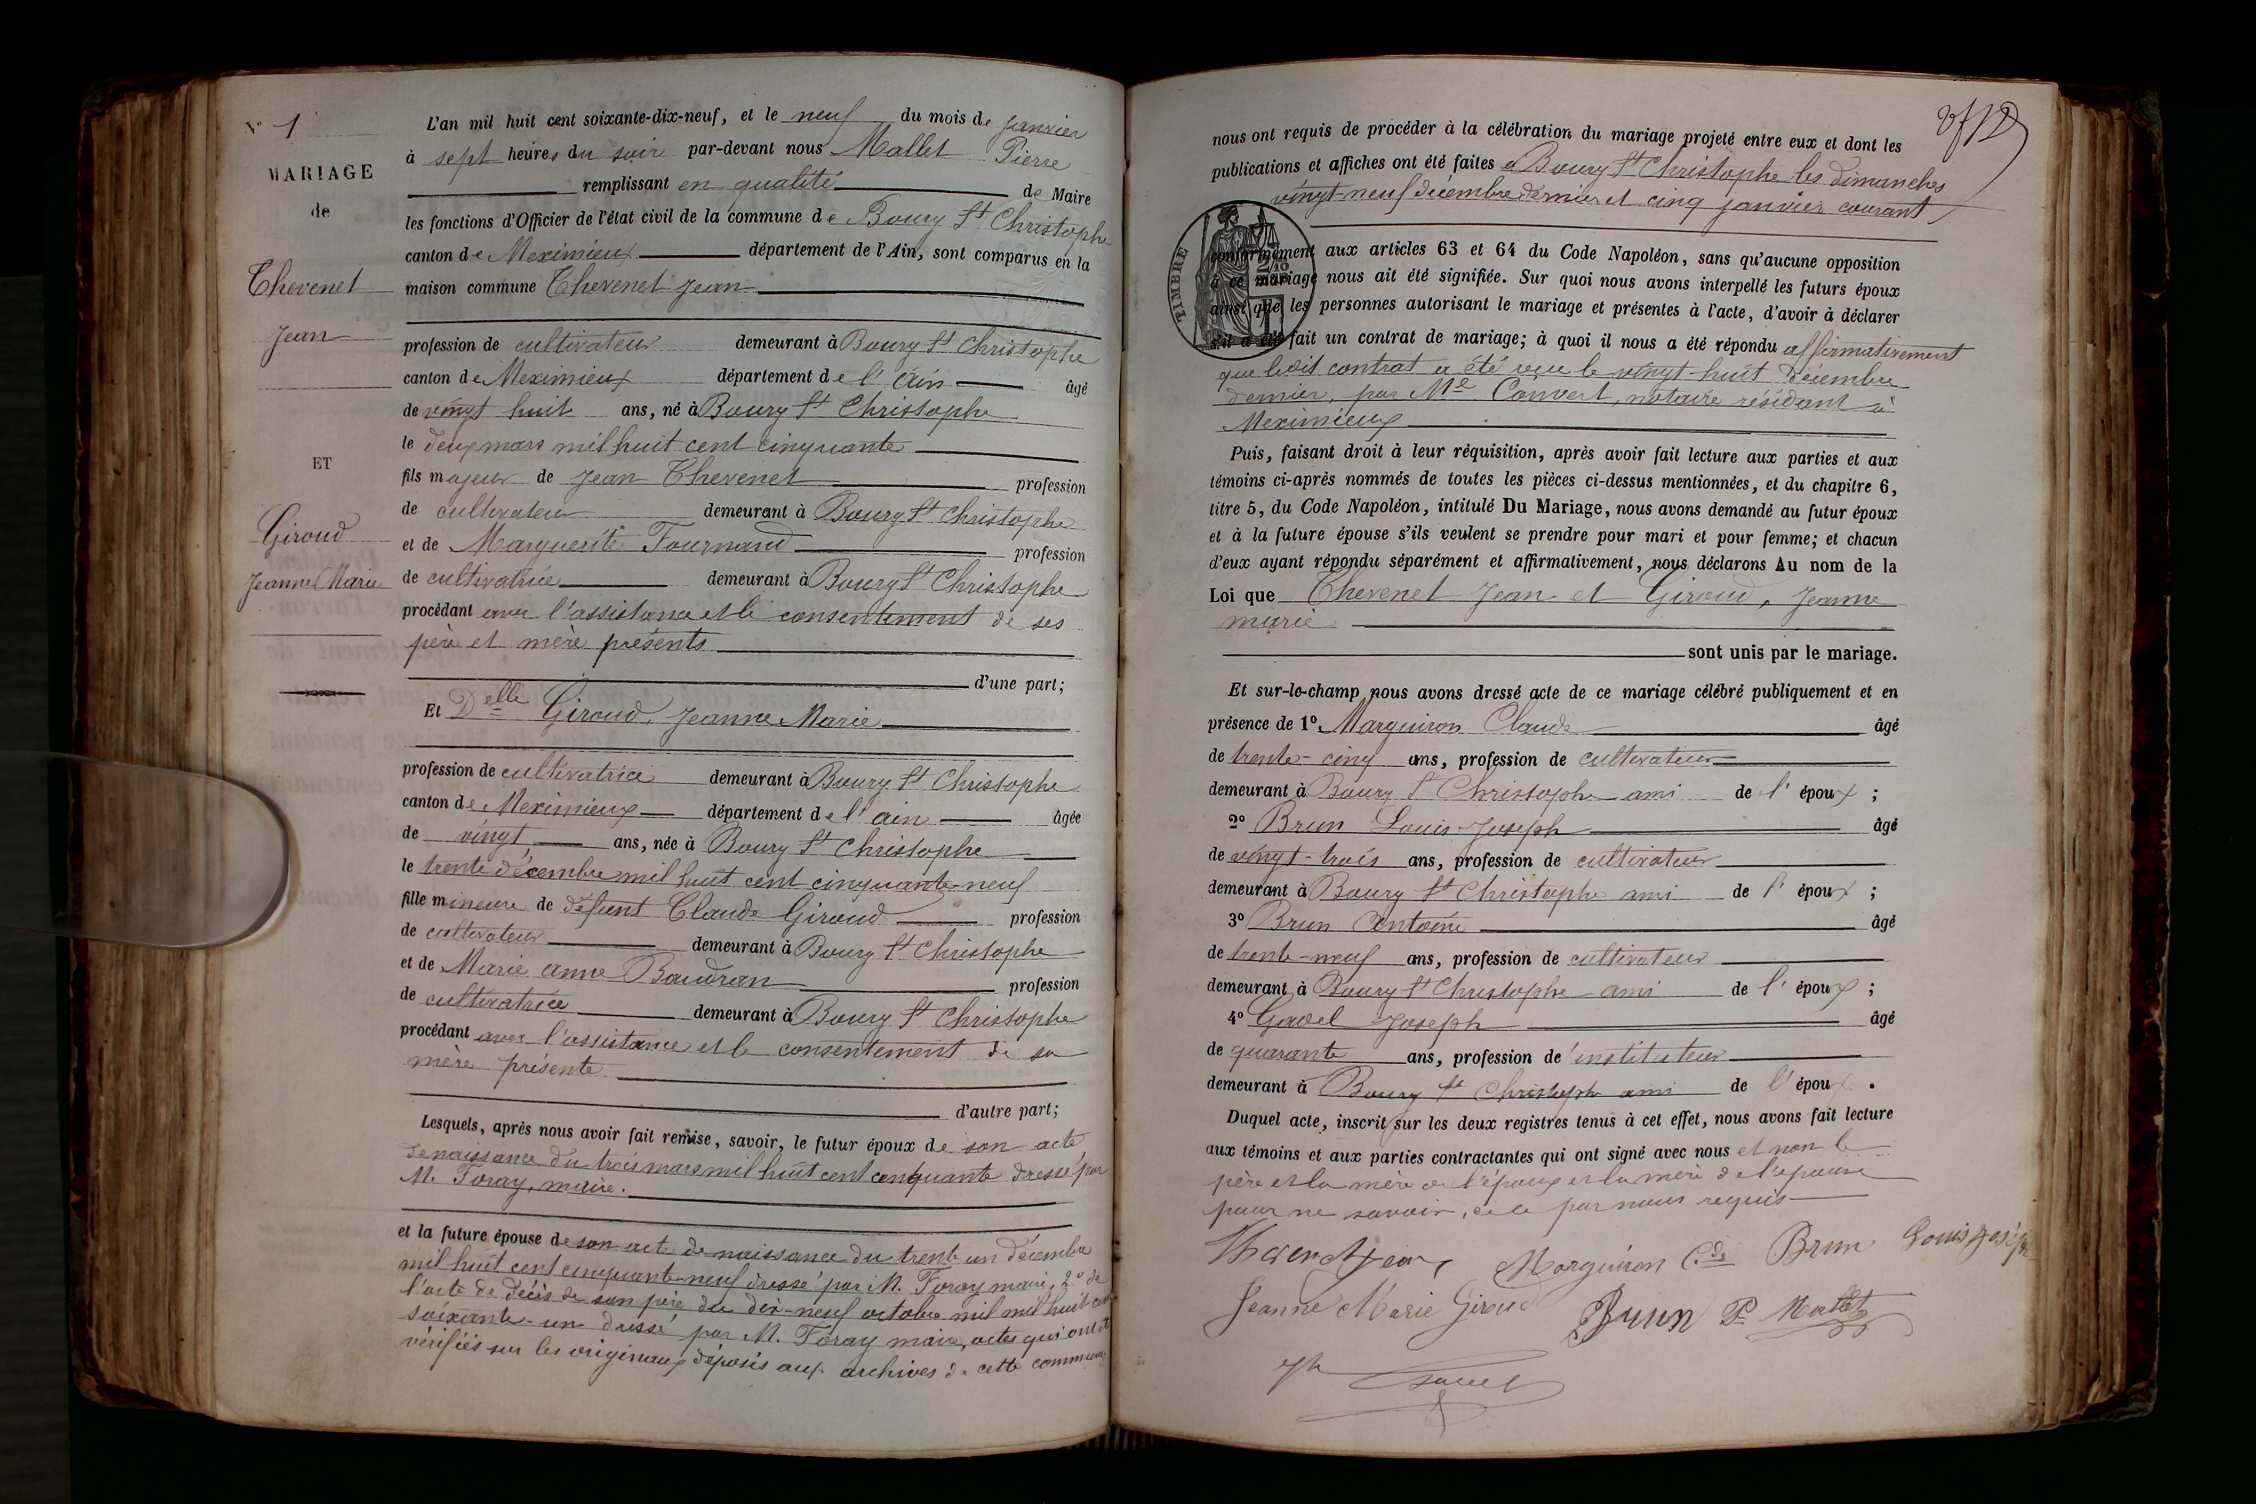 N° 1
MARIAGE
de
Thevenet
Jean
ET
Giroud
Jeanne Marie
L'an mil huit cent soixante-dix-neuf, et le neuf du mois de janvier
à sept heures du soir par-devant nous Mallet Pierre
remplissant en qualité de Maire
les fonctions d'Officier de l'état civil de la commune de Bourg St Christophe
canton de Meximieux département de l'Ain, sont comparus en la
maison commune Thevenet Jean
profession de cultivateur demeurant à Bourg St Christophe
canton de Meximieux département de l'Ain âgé
de vingt huit ans, né à Bourg St Christophe
le deux mars mil huit cent cinquante
fils majeur de Jean Thevenet profession
de cultivateur demeurant à Bourg St Christophe
et de Marguerite Fournand profession
de cultivatrice demeurant à Bourg St Christophe
procédant avec l'assistance et le consentement de ses
père et mère présents
d'une part;
Et Delle Giroud, Jeanne Marie
profession de cultivatrice demeurant à Bourg St Christophe
canton de Meximieux département de l'ain âgée
de vingt ans, née à Bourg St Christophe
le trente décembre mil huit cent cinquante-neuf
fille mineure de défunt Claude Giroud profession
de cultivateur demeurant à Bourg St Christophe
et de Marie anne Baudran profession
de cultivatrice demeurant à Bourg St Christophe
procédant avec l'assistance et le consentement de sa
mère présente
d'autre part;
Lesquels, après nous avoir fait remise, savoir, le futur époux de son acte
de naissance du trois mars mil huit cent cinquante dressé par
M. Foray, maire.
et la future épouse de son acte de naissance du trente un décembre
mil huit cent cinquante-neuf dressé par M. Foray maire, 2° de
l'acte de décès de son père du dix-neuf octobre mil mil huit cent
soixante-un dressé par M. Foray maire, actes qui ont été
vérifiés sur les originaux déposés aux archives de cette commune
nous ont requis de procéder à la célébration du mariage projeté entre eux et dont les
publications et affiches ont été faites à Bourg St Christophe les dimanches
vingt-neuf décembre dernier et cinq janvier courant
TIMBRE
conformément aux articles 63 et 64 du Code Napoléon, sans qu'aucune opposition
à ce mariage nous ait été signifiée. Sur quoi nous avons interpellé les futurs époux
ainsi que les personnes autorisant le mariage et présentes à l'acte, d'avoir à déclarer
s'il a été fait un contrat de mariage; à quoi il nous a été répondu affirmativement
que ledit contrat a été reçu le vingt-huit décembre
dernier, par Me Convert, notaire résidant à
Meximieux
Puis, faisant droit à leur réquisition, après avoir fait lecture aux parties et aux
témoins ci-après nommés de toutes les pièces ci-dessus mentionnées, et du chapitre 6,
titre 5, du Code Napoléon, intitulé Du Mariage, nous avons demandé au futur époux
et à la future épouse s'ils veulent se prendre pour mari et pour femme; et chacun
d'eux ayant répondu séparément et affirmativement, nous déclarons Au nom de la
Loi que Thevenet Jean et Giroud, Jeanne
marie
sont unis par le mariage.
Et sur-le-champ nous avons dressé acte de ce mariage célébré publiquement et en
présence de 1°. Marguiron Claude âgé
de trente-cinq ans, profession de cultivateur
demeurant à Bourg St Christophe ami de l'époux ;
2° Brun Louis-Joseph âgé
de vingt-trois ans, profession de cultivateur
demeurant à Bourg St Christophe ami de l'époux ;
3° Brun Antoine âgé
de trente-neuf ans, profession de cultivateur
demeurant à Bourg St Christophe ami de l'époux ;
4° Gavel Joseph âgé
de quarante ans, profession de instituteur
demeurant à Bourg St Christophe ami de l'époux.
Duquel acte, inscrit sur les deux registres tenus à cet effet, nous avons fait lecture
aux témoins et aux parties contractantes qui ont signé avec nous et non le
père et la mère de l'époux et la mère de l'épouse
pour ne savoir, de ce par nous requis
Marguiron Cde Brun Louis Joseph
Jeanne Marie Giroud Brun P. Mallet